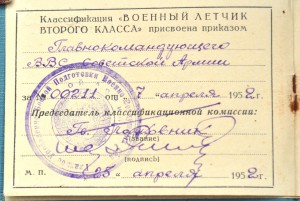 Классификация «ВОЕННЫЙ ЛЕТЧИК
ВТОРОГО КЛАССА» присвоена приказом
Главнокомандующего
ВВС Советской Армии
за № 00211 от „7“ апреля 1952 г.
Председатель классификационной комиссии:
Гв. Полковник
(звание)
(подпись)
М. П. „25“ апреля 1952 г.